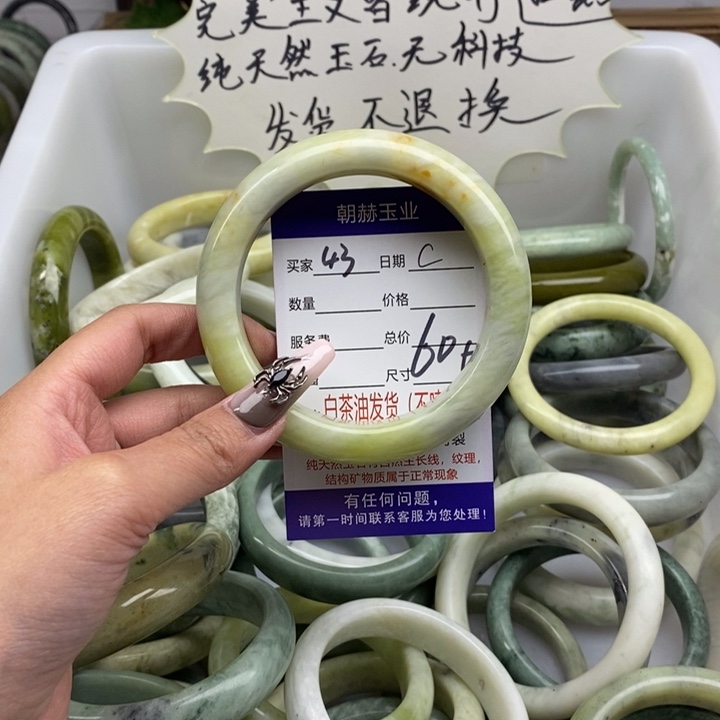 纯天然玉石.无科技
发货不退换
朝赫玉业
买家 43 日期 C
数量 价格
服务费 总价
尺寸 60
白茶油发货(不
裂
纯天然玉石有自然生长线，纹理，
结构矿物质属于正常现象
有任何问题，
请第一时间联系客服为您处理！